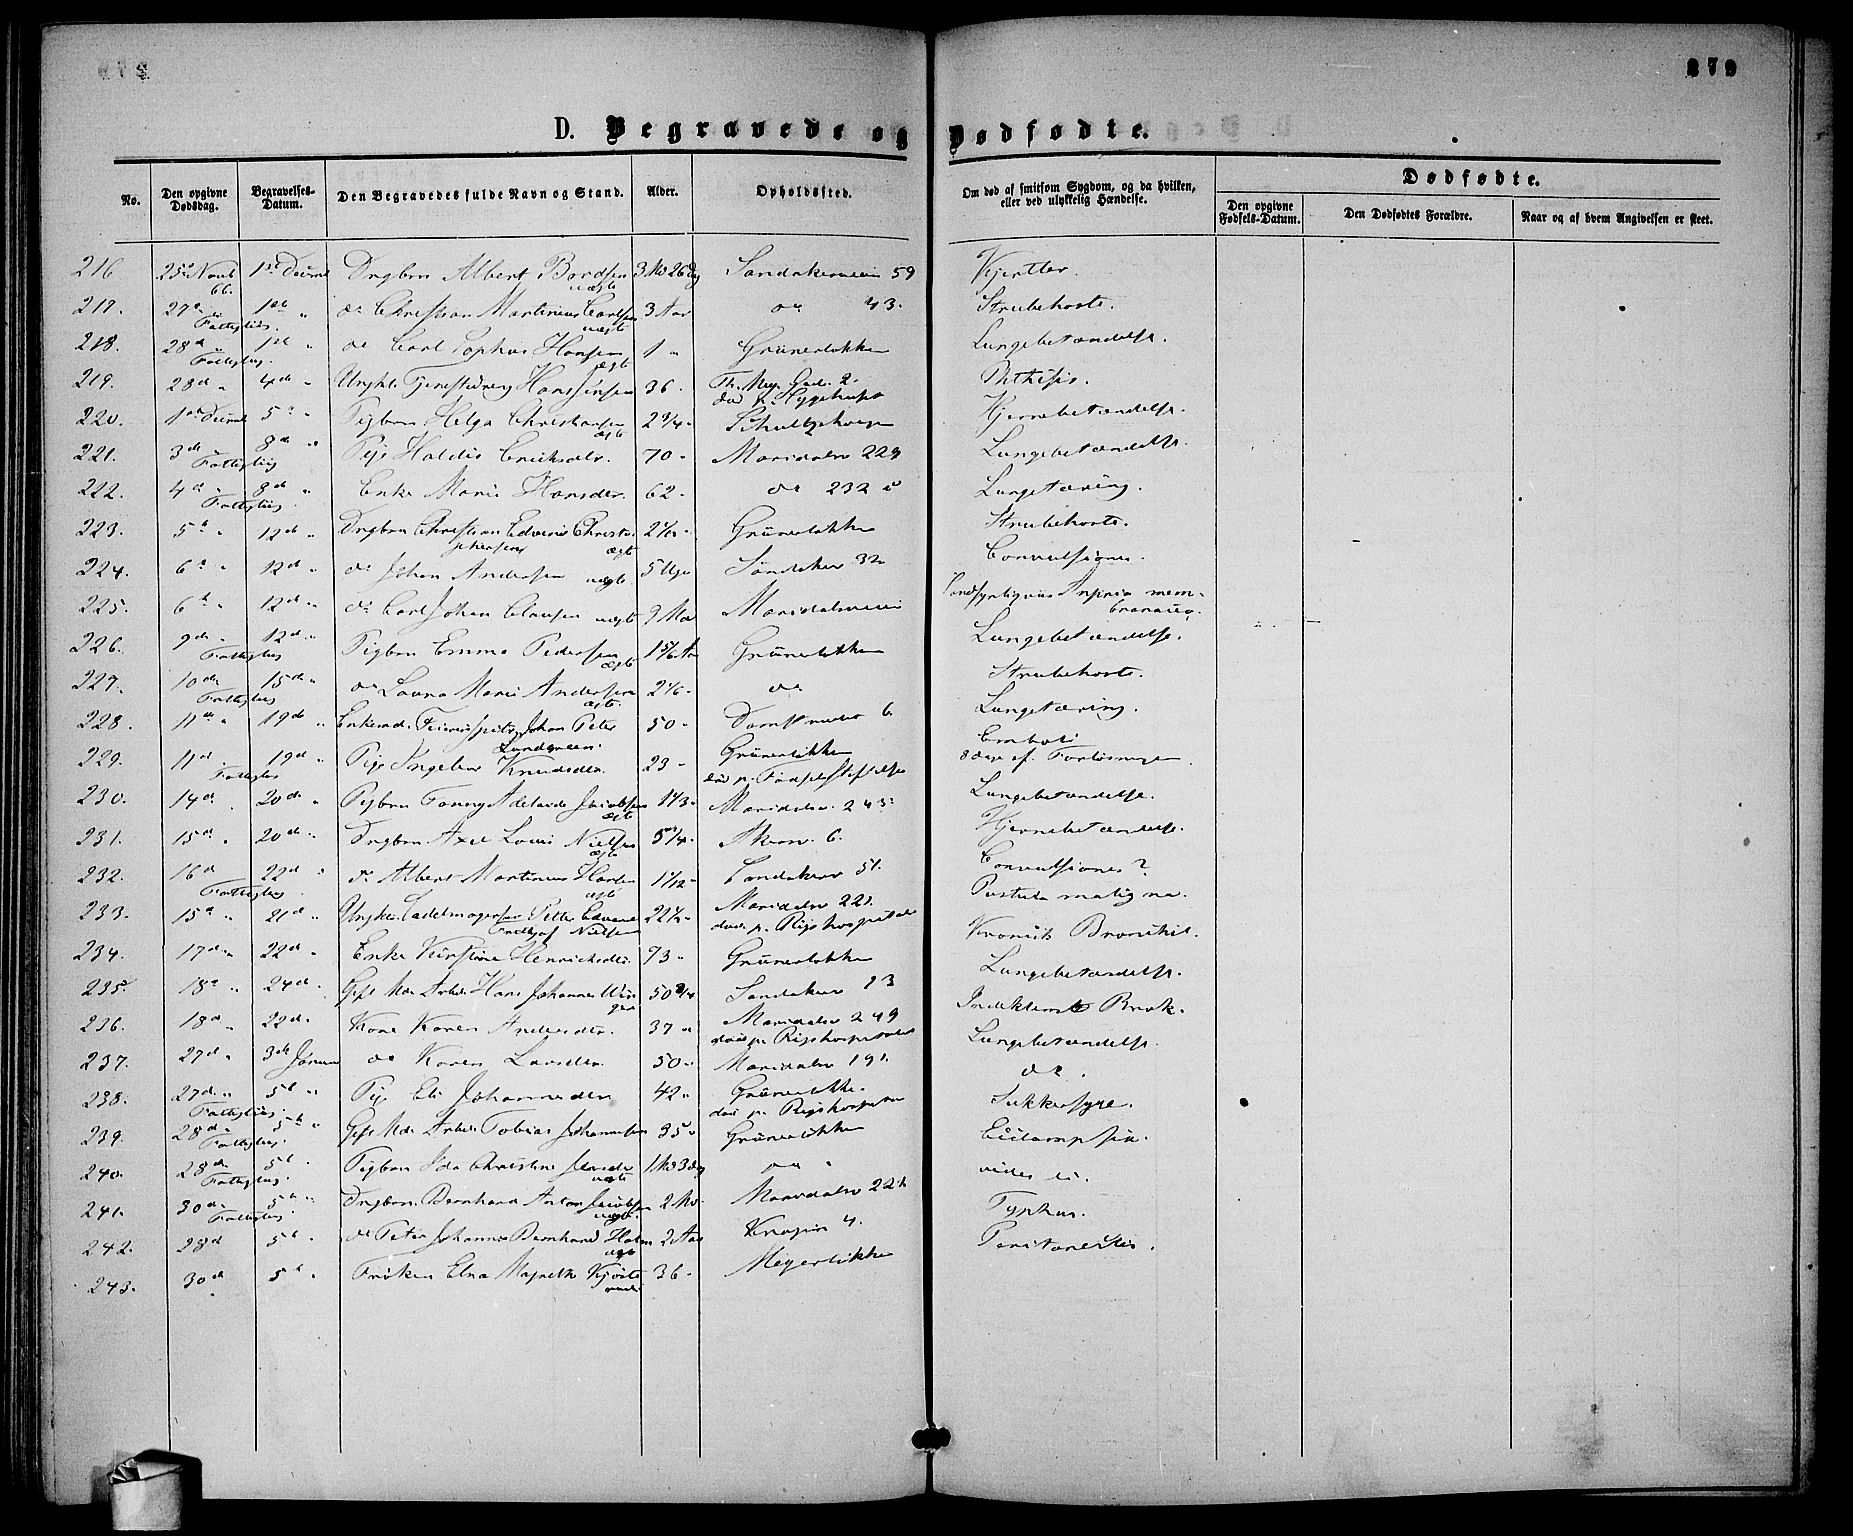 279
D. Begravede og Dødfødte.
No. Den opgivne Dødsdag. Begravelses-Datum. Den Begravedes fulde Navn og Stand. Alder. Opholdssted. Om død af smitsom Sygdom, og da hvilken, eller ved ulykkelig Hændelse. Dødfødte.
Den opgivne Fødsels-Datum. Den Dødfødtes Forældre. Naar og af hvem Angivelsen er skeet.
216 25d Novb 66. 1ste Decembr Drgbrn Albert Bordsen uægte 3 Md 26 Dg Sandakerveien 59 Kjertler.
217. 27d " Fattiglig. 1st " do Christian Martinius Carlsen uægte 3 Aar do 43. Strubehoste.
218. 28d " Fattiglig. 1st " do Carl Sophus Hansen ægte 1 " Grünerløkken Lungebetændelse.
219. 28d " 4de " Ungk. Tjenestedreng Hans Jensen 36 Th. Mey. Gade 2. død p. Sygehuset Phthisis.
220. 1ste Decmb 5t " Pigbrn Helga Christiansen ægte 2 3/4 Schultzehaugen Hjernebetændelse.
221. 3d " Fattiglig 8de " Pige Haldis Eriksdtr. 70 Maridalsv 229 Lungebetændelse.
222. 4d " Fattiglig. 8de " Enke Marie Hansdtr. 62 do 232 Lungetæring.
223. 5t " 12de " Drgbrn Christian Edvins Christophersen ægte 2 1/2 Grünerløkken Strubehoste.
224. 6t " 12de " do Johan Andersen uægte 5 Uger Sandaker 32 Convulsioner.
225. 6t " 12de " do Carl Johan Clausen uægte 9 Md Maridalsveien Sandsynligviis Angina membranacea.
226. 9de " Fattiglig 12de " Pigbrn Emma Pedersen ægte 1 5/6 Aar Grünerløkken Lungebetændelse.
227. 10de Fattiglig 15de " do Laura Marie Andersen ægte. 2 1/6 do Strubehoste.
228. 11te " 19de " Enkemd. Johan Peter Lundgreen. 50 Damstrædet 6. Lungetæring.
229. 11d " Fattiglig 19de " Pige Ingeline Knudsdtr. 23 Grünerløkken død p. Fødselsstiftelsen Emboli 8 Dage ef. Forløsningen.
230. 14d " 20de " Pigbrn Fanny Adelaide Jacobsen ægte 1 1/3 Maridalsv. 243. Lungebetændelse.
231. 15d " 20de " Drgbrn Axel Louis Nielsen ægte 5 1/4 Akersv. 6. Hjernebetændelse.
232. 16d Fattiglig. 22d " do Albert Martinius Hansen ægte 1 1/12 Sandakerv 51. Convulsioner?
233. 15d " 21d " Ungk. Sadelmagersv Petter Edvard Fridtjof Nielsen 22 1/2 Maridalsv 221. død p. Rigshospitalet Pustula maligna.
234. 17d " 22d " Enke Kirstine Henriksdtr. 73 Grünerløkken Kronisk Bronchit.
235. 18d " 24d " Gift Md Arbdr Hans Johannes Winger 50 3/4 Sandakerv 93 Lungebetændelse.
236. 18d " 22d. Kone Karen Andersdtr. 37 Maridalsv 249 død p. Rigshospitalet Indeklemt Brok.
237. 27d " 3de Januar do Karen Larsdtr. 50 Maridalsv 191. Lungebetændelse.
238. 27d " Fattiglig. 5t " Pige Eli Johannesdtr 42 Grünerløkke. død p. Rigshospitalet do.
239. 28d " Fattiglig. 5t " Gift Md. Arbdr Tobias Johannesen 35 Grünerløkken Sukkersyge.
240. 28de Fattiglig 5t. Pigbrn Ida Christine Jensdtr uægte 1 Md 3 Dg do " Eclampsia.
241. 30de Fattiglig. 5t " Drgbrn Bernhard Anton Jacobsen uægte. 2 Md. Maridalsv 221 vides ei.
242. 28d 5t " do Peter Johannes Bernhard Holm ægte 2 Aar Krogen 4. Typhus.
243. 30d 5t " Frøken Elna Magrethe Kjørstenrud 36 Meyerløkken Peritonitis.